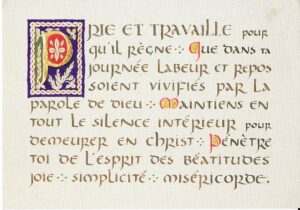 PRIE ET TRAVAILLE pour
qu'il RÈGNE ⁘ Que dans ta
journée labeur et repos
soient vivifiés par la
parole de Dieu ⁘ Maintiens en
tout le silence intérieur pour
demeurer en Christ ⁘ Pénètre
toi de l'esprit des béatitudes
joie ⁘ simplicité ⁘ miséricorde.